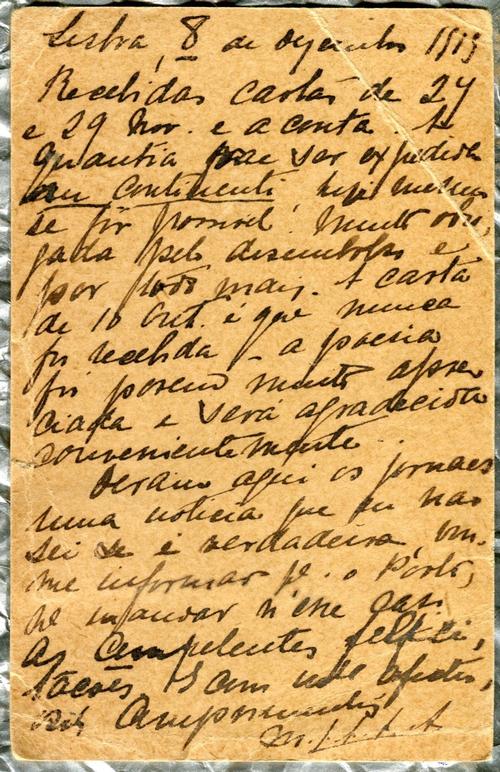 Lisboa, 8 de Dezembro 1919
Recebidas cartas de 27
e 29 Nov. e a conta. A
quantia vae ser expedida
in continenti, hoje mesmo
se fôr possivel. Muito obri,
gada pelo desembolso e
por todo mais. A carta
de 10 Out. é que nunca
foi recebida - a poesia
foi porem muito apre
ciada e será agradecida
convenientemente...
Deram aqui os jornaes
uma noticia que eu não
sei se é verdadeira, vou
me informar p. o Porto,
e mandar n'esse caso
as competentes felici,
tações
Cumprimentos